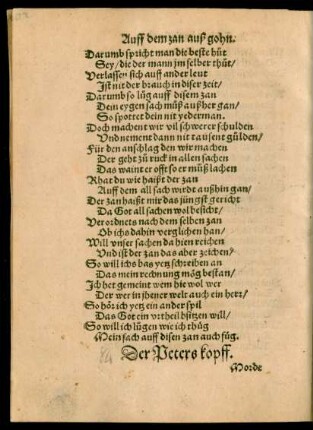 Auff dem zan auß gohn.
Darumb spricht man die beste hüt
Sey/die der mann jm selber thüt/
Verlassen sich auff ander leut
Jst nit der brauch in diser zeit/
Darumb so lüg auff disem zan
Dein eygen sach müß außher gan/
So spottet dein nit yederman.
Doch machent wir vil schwerer schulden
Vnd nement dann nit tausent gülden/
Für den anschlag den wir machen
Der geht zü ruck in allen sachen
Das waint er offt so er müß lachen
Rhat du wie haißt der zan
Auff dem all sach wirdt außhin gan/
Der zan haißt mir das jüngst gericht
Da Got all sachen wol besicht/
Verordnets nach dem selben zan
Ob ichs dahin verglichen han/
Will vnser sachen da hien reichen
Vnd ist der zan das aber zeichen/
So will ichs bas yetz schreiben an
Das mein rechnung mög bestan/
Jch het gemeint wem hie wol wer
Der wer in jhener welt auch ein herr/
So hör ich yetz ein ander spil
Das Got ein vrtheil bsitzen will/
So will ich lügen wie ich thüg
Mein sach auff disen zan auch füg.
Der Peters kopff.
Morde